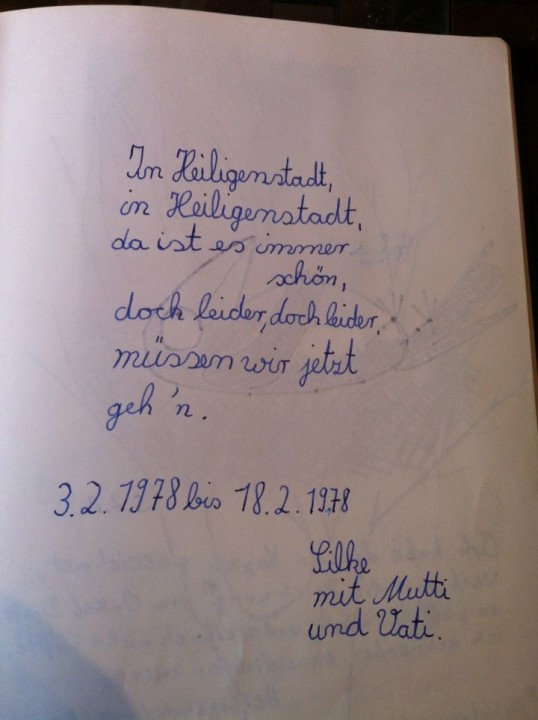 In Heiligenstadt,
in Heiligenstadt,
da ist es immer
schön,
doch leider, doch leider,
müssen wir jetzt
geh'n.
3.2.1978 bis 18.2.1978
Silke
mit Mutti
und Vati.